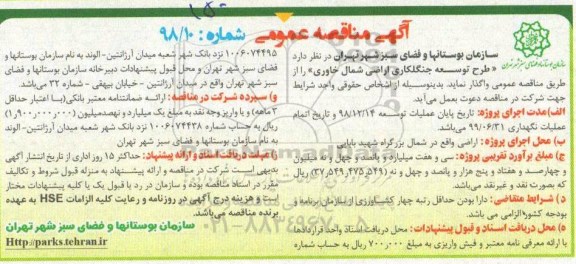 آگهی مناقصه عمومی شماره: ۹۸/۱۰
سازمان بوستانها و فضای سبز شهر تهران
سازمان بوستانها و فضای سبز شهر تهران در نظر دارد
«طرح توسعه جنگلکاری اراضی شمال خاوری» را از
طریق مناقصه عمومی واگذار نماید. بدینوسیله از اشخاص حقوقی واجد شرایط
جهت شرکت در مناقصه دعوت بعمل می‌آید.
الف) مدت اجرای پروژه: تاریخ پایان عملیات توسعه ۹۸/۱۲/۱۴ و تاریخ اتمام
عملیات نگهداری ۹۹/۰۶/۳۱ می باشد.
ب) محل اجرای پروژه: اراضی واقع در شمال بزرگراه شهید بابایی
ج) مبلغ برآورد تقریبی پروژه: سی و هفت میلیارد و پانصد و چهل و نه میلیون
و چهارصد و هفتاد و پنج هزار و پانصد و چهل و نه (۳۷,۵۴۹,۴۷۵,۵۴۹) ریال
که بصورت نقد و غیرنقد می باشد.
د) شرایط متقاضی: دارا بودن حداقل رتبه چهار کشاورزی از سازمان برنامه و
بودجه کشور الزامی می باشد.
ه) محل دریافت اسناد و قبول پیشنهادات: محل دریافت اسناد واحد قراردادها
با ارائه معرفی نامه معتبر و فیش واریزی به مبلغ ۷۰۰,۰۰۰ ریال به حساب شماره
۱۰۰۶۰۷۴۴۹۵ نزد بانک شهر شعبه میدان آرژانتین-الوند به نام سازمان بوستانها و
فضای سبز شهر تهران و محل قبول پیشنهادات دبیرخانه سازمان بوستانها و فضای
سبز شهر تهران واقع در میدان آرژانتین - خیابان بیهقی - شماره ۳۲ می باشد.
و) سپرده شرکت در مناقصه: ارائه ضمانتنامه معتبر بانکی (با اعتبار حداقل
۳ ماهه) و یا واریز وجه نقد به مبلغ یک میلیارد و نهصد میلیون (۱,۹۰۰,۰۰۰,۰۰۰)
ریال به حساب شماره ۱۰۰۶۰۷۴۴۳۸ نزد بانک شهر شعبه میدان آرژانتین - الوند
به نام سازمان بوستانها و فضای سبز شهر تهران
ز) مهلت دریافت اسناد و ارائه پیشنهاد: حداکثر ۱۵ روز اداری از تاریخ انتشار آگهی
بدیهی است شرکت در مناقصه و ارائه پیشنهاد به منزله قبول شروط و تکالیف
مقرر در اسناد مناقصه بوده و سازمان در رد یا قبول یک یا کلیه پیشنهادات مختار
است و هزینه درج آگهی در روزنامه و رعایت کلیه الزامات HSE به عهده
برنده مناقصه می باشد.
سازمان بوستانها و فضای سبز شهر تهران
Http://parks.tehran.ir
۰۲۱-۸۸۳۴۹۶۷۰